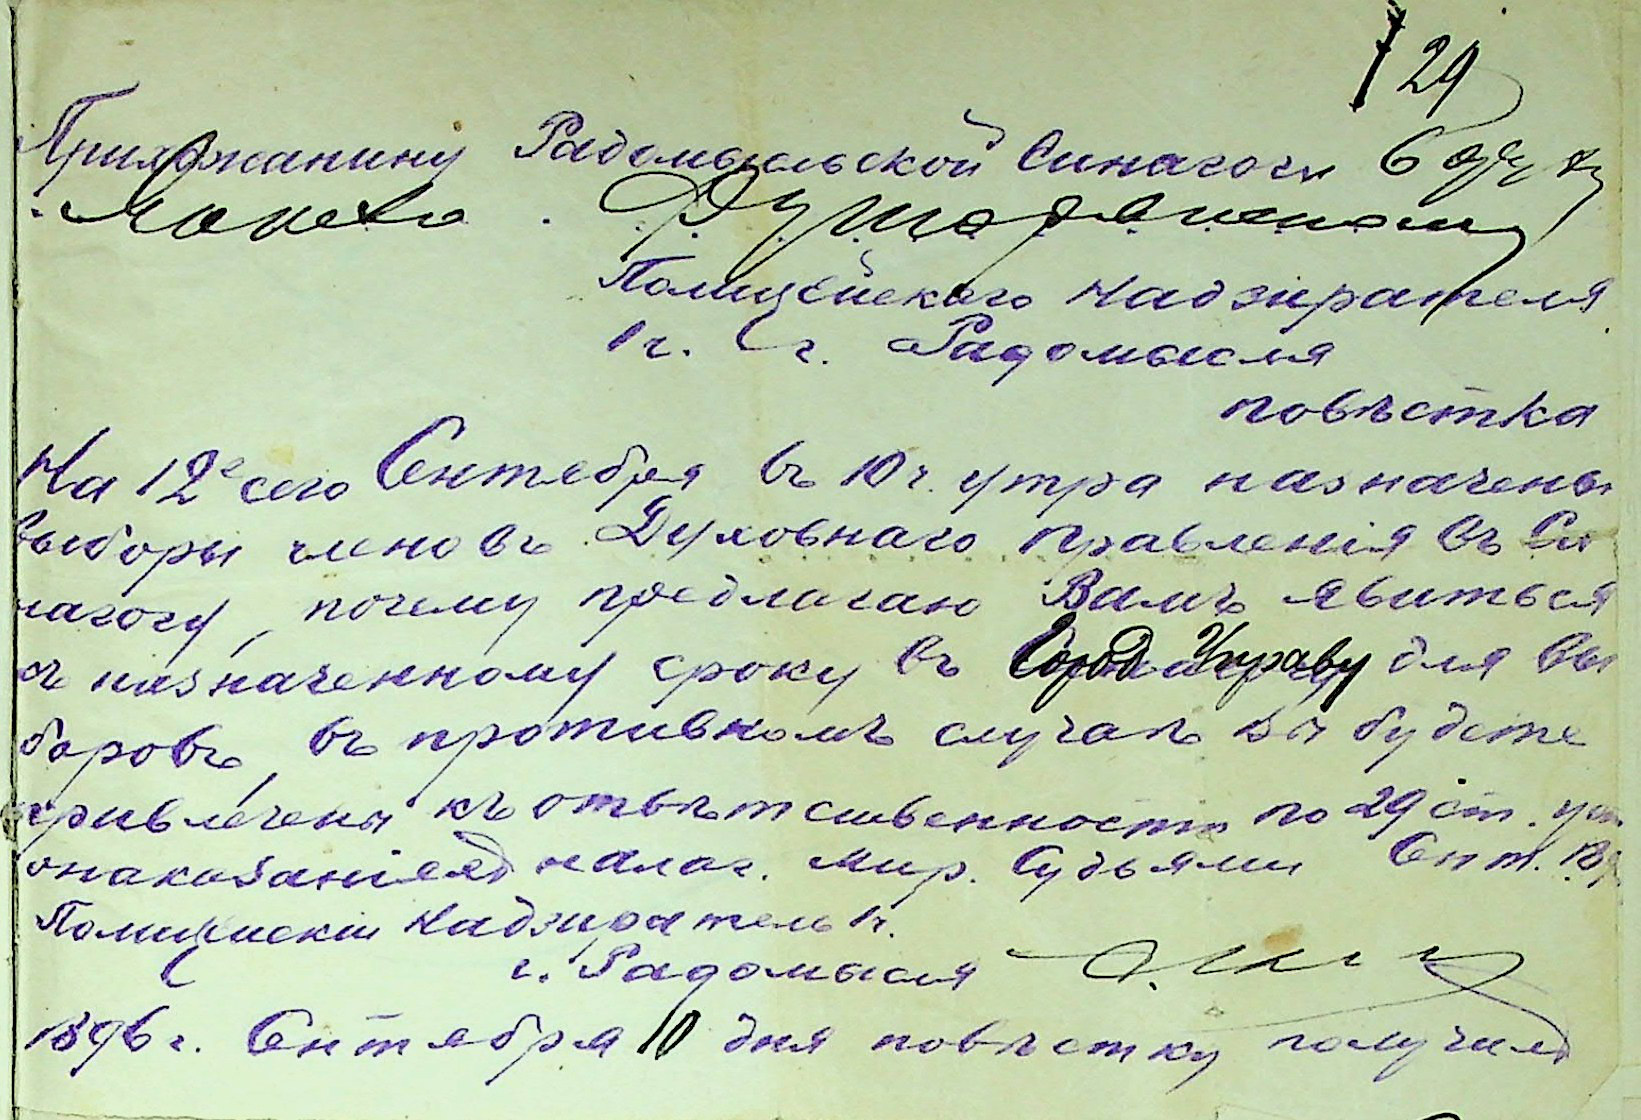 29
Прихожанину Радомысльской Синагоги
Полицейскаго Надзирателя
1 ч. г. Радомысля
повѣстка
На 12е сего Сентября въ 10 ч. утра назначены
выборы членовъ Духовнаго Правленія въ Си
нагогу, почему предлагаю Вамъ явиться
къ назначенному сроку въ Город Управу для вы
боровъ, въ противномъ случаѣ Вы будете
привлечены къ отвѣтственности по 29 ст. уст.
о наказаніяхъ налаг. Мир. Судьями Сент.
Полицейскій Надзиратель 1 ч.
г. Радомысля
1896 г. Сентября 10 дня повѣстку получилъ